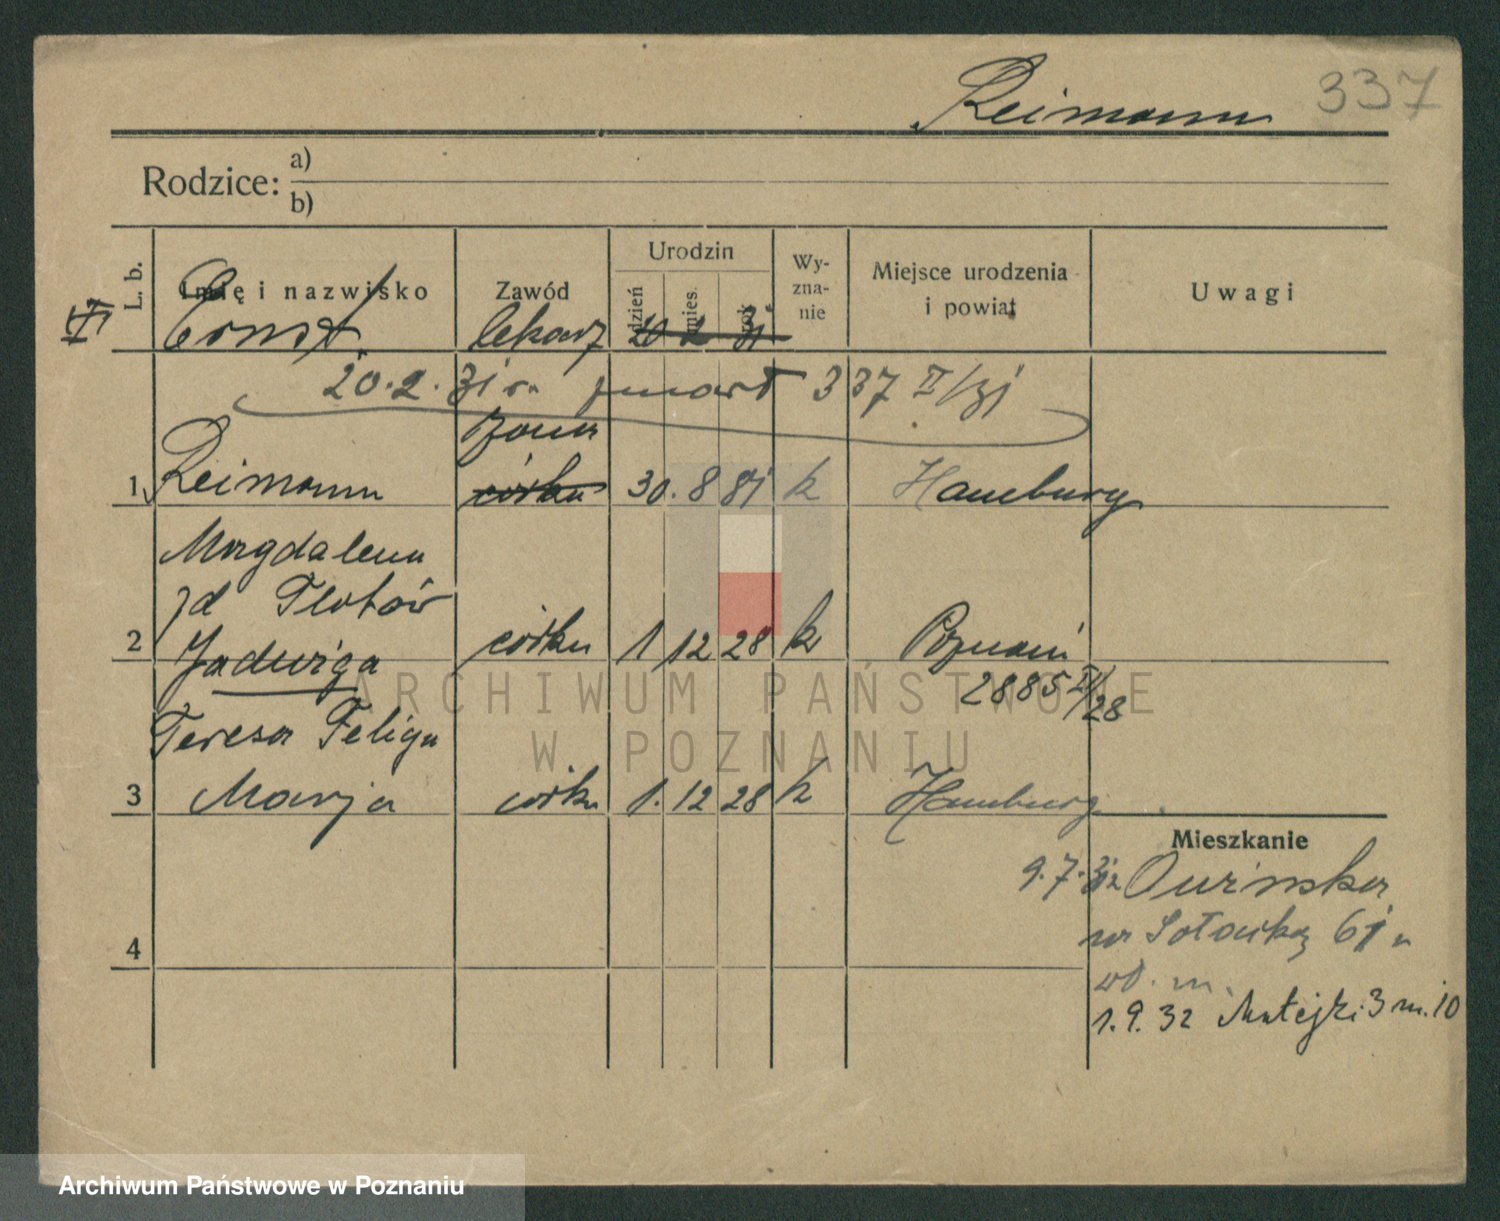 Reimann 337
Rodzice: a)
b)
L. b. Imię i nazwisko Zawód Urodzin dzień mies. rok Wy-zna-nie Miejsce urodzenia i powiat Uwagi
VI Ernst lekarz 20 2 31
20.2.31 r. zmarł 337 II/31
żona
1 Reimann córka 30. 8 81 k Hamburg
Magdalena
zd Flotów
2 Jadwiga córka 1 12 28 k Poznań
2885 IV/28
Teresa Feliga
3 Marja córka 1. 12 28 k Hamburg
Mieszkanie
9.7.31
4
61
wł. m.
1.9.32 Matejki 3 m. 10
ARCHIWUM PAŃSTWOWE
W POZNANIU
Archiwum Państwowe w Poznaniu